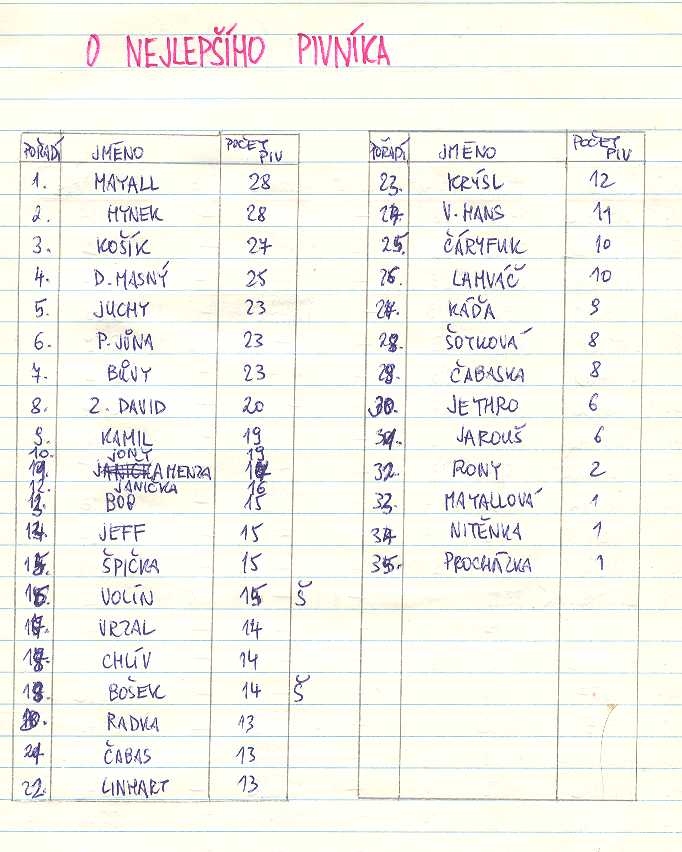 O NEJLEPŠÍHO PIVNÍKA
POŘADÍ JMÉNO POČET PIV
1. MAYALL 28
2. HYNEK 28
3. KOŠÍK 27
4. D. MASNÝ 25
5. JUCHY 23
6. P. JŮNA 23
7. BŮVY 23
8. Z. DAVID 20
9. KAMIL 19
10. JONY 19
11. AMENZA
12. JANIČKA 16
13. BOB 15
14. JEFF 15
15. ŠPIČKA 15
16. VOLÍN 15 Š
17. VRZAL 14
18. CHLÍV 14
19. BOŠEK 14 Š
20. RADKA 13
21 ČABAS 13
22. LINHART 13
POŘADÍ JMÉNO POČET PIV
23. KRÝSL 12
24. V. HANS 11
25. ČÁRYFUK 10
26. LAHVÁČ 10
27. KÁĎA 9
28. ŠOTKOVÁ 8
29. ČABASKA 8
30. JETHRO 6
31. JAROUŠ 6
32. RONY 2
33. MAYALLOVÁ 1
34 NITĚNKA 1
35. PROCHÁZKA 1